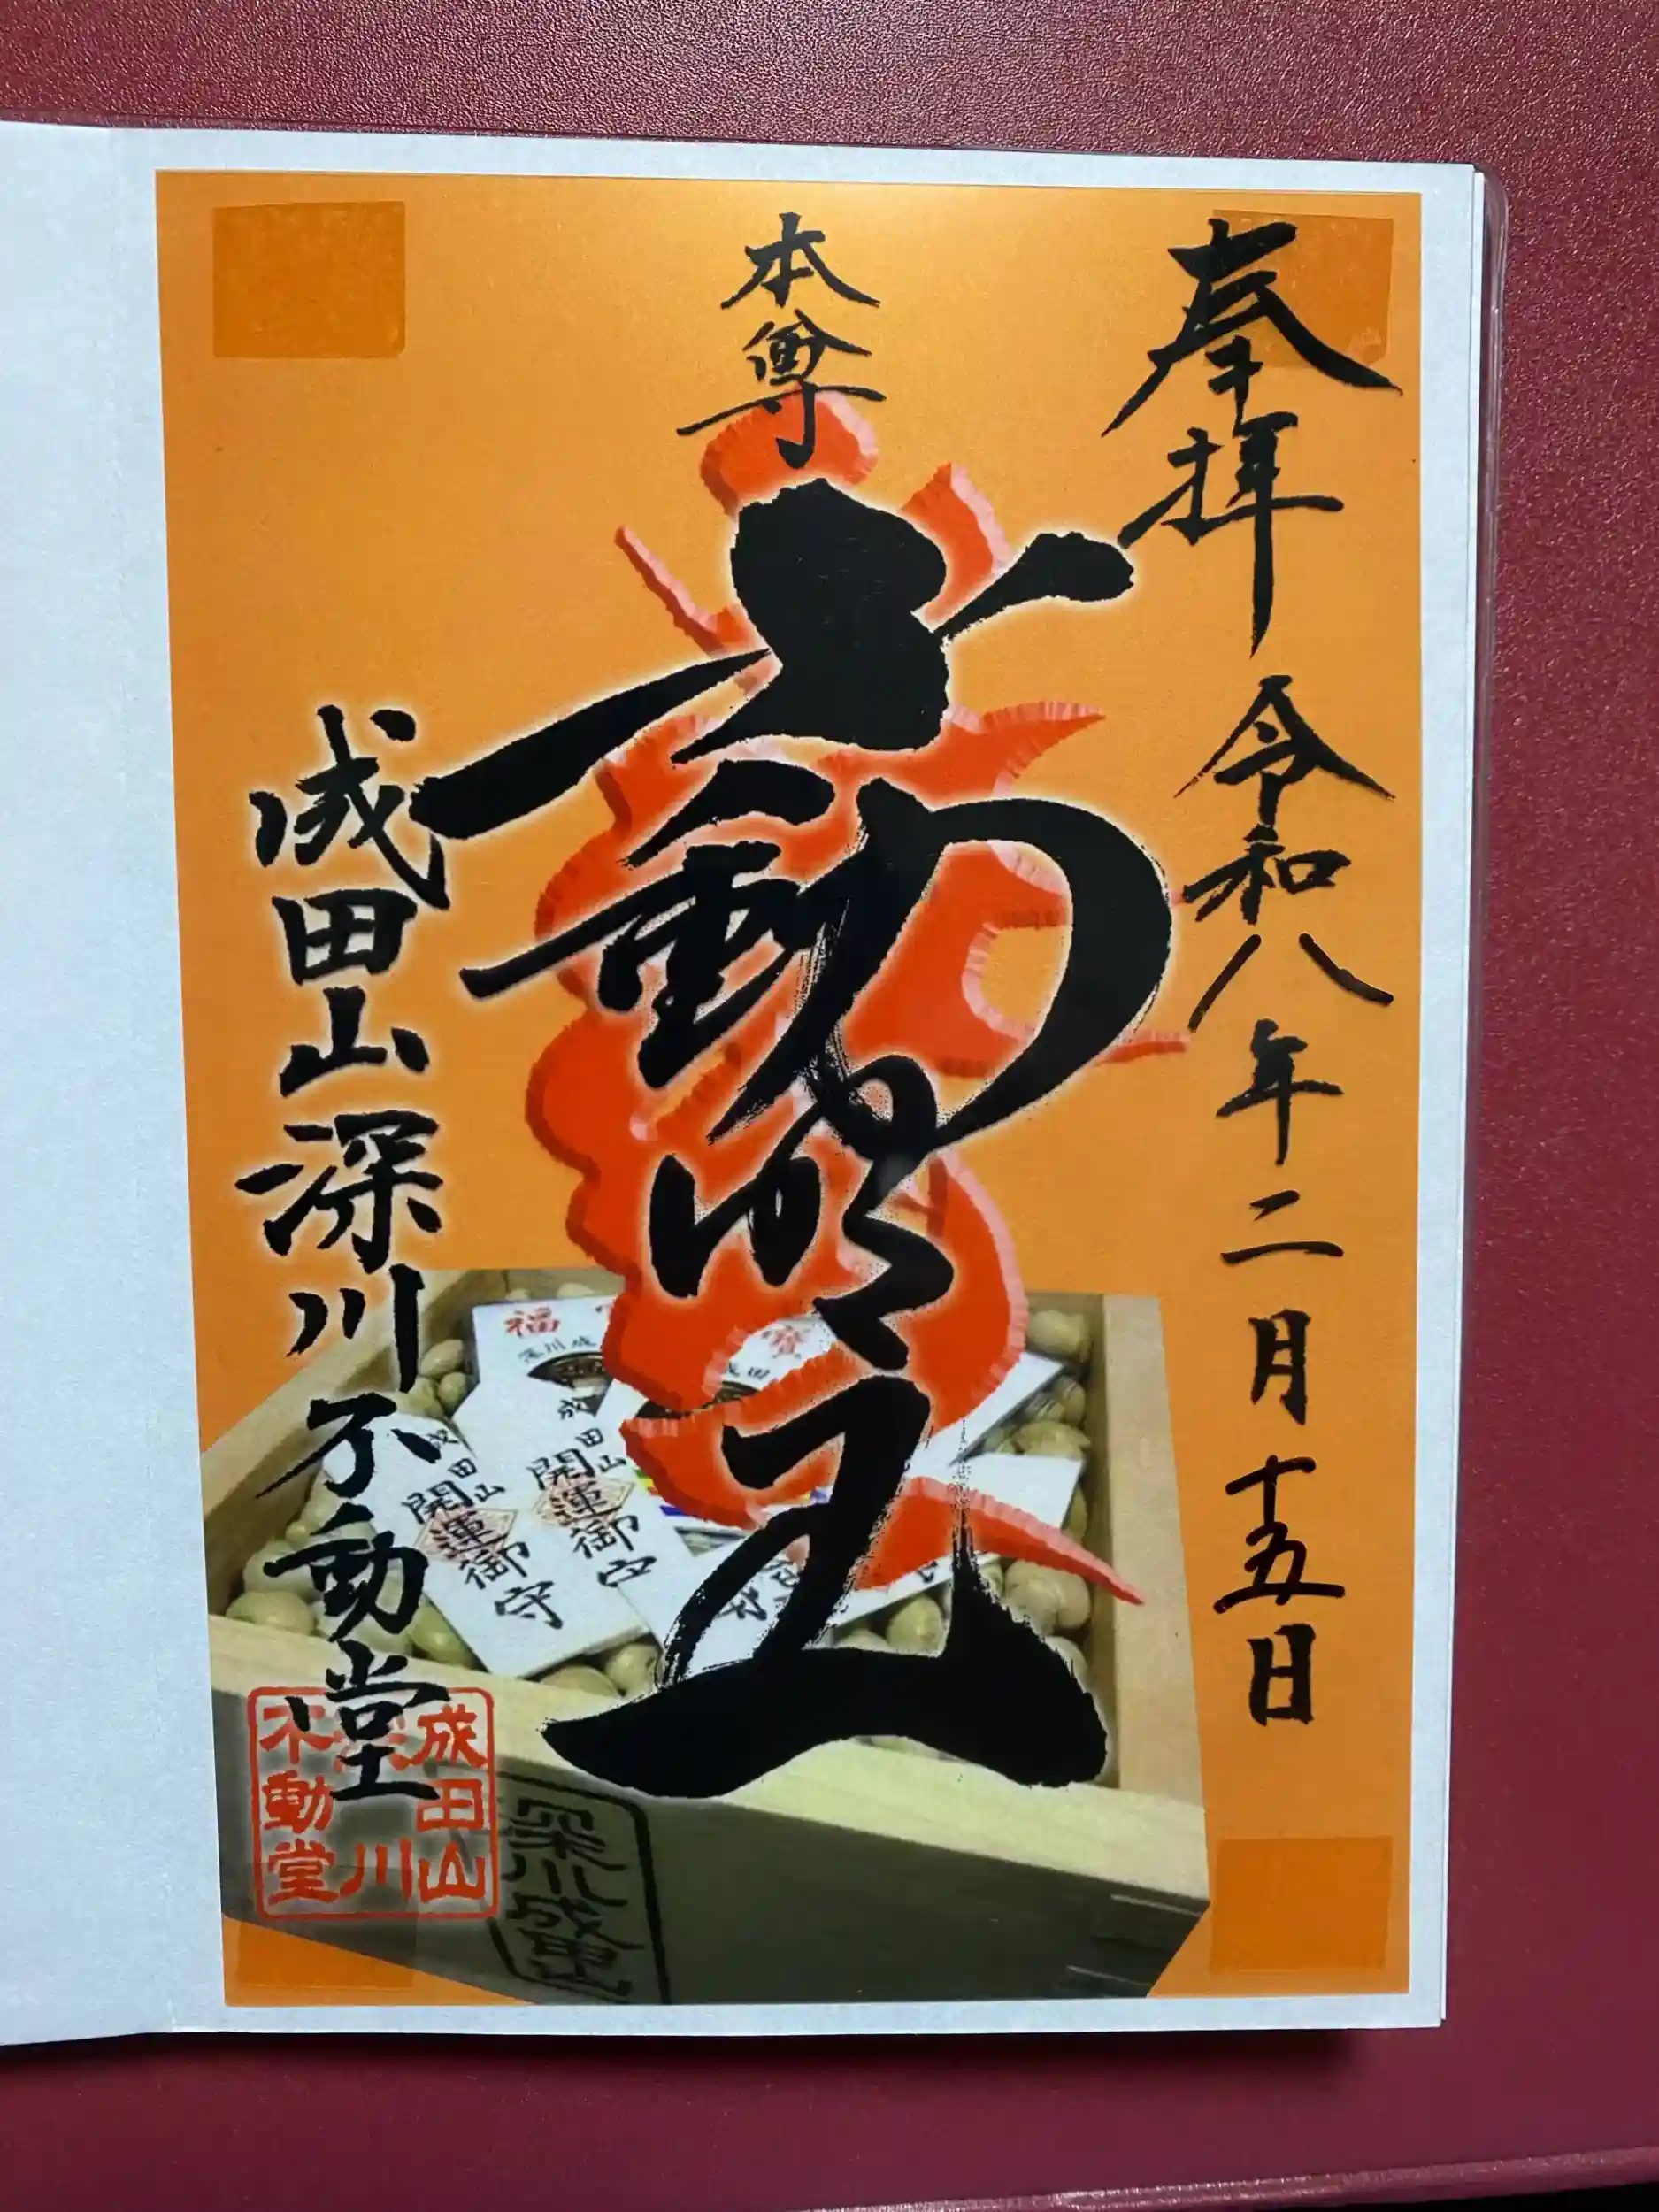 奉拝
令和八年二月十五日
本尊
不動明王
成田山深川不動堂
福
寶
成田山
開運御守
成田山
開運御守
成田山
深川
不動堂
深川
成田山